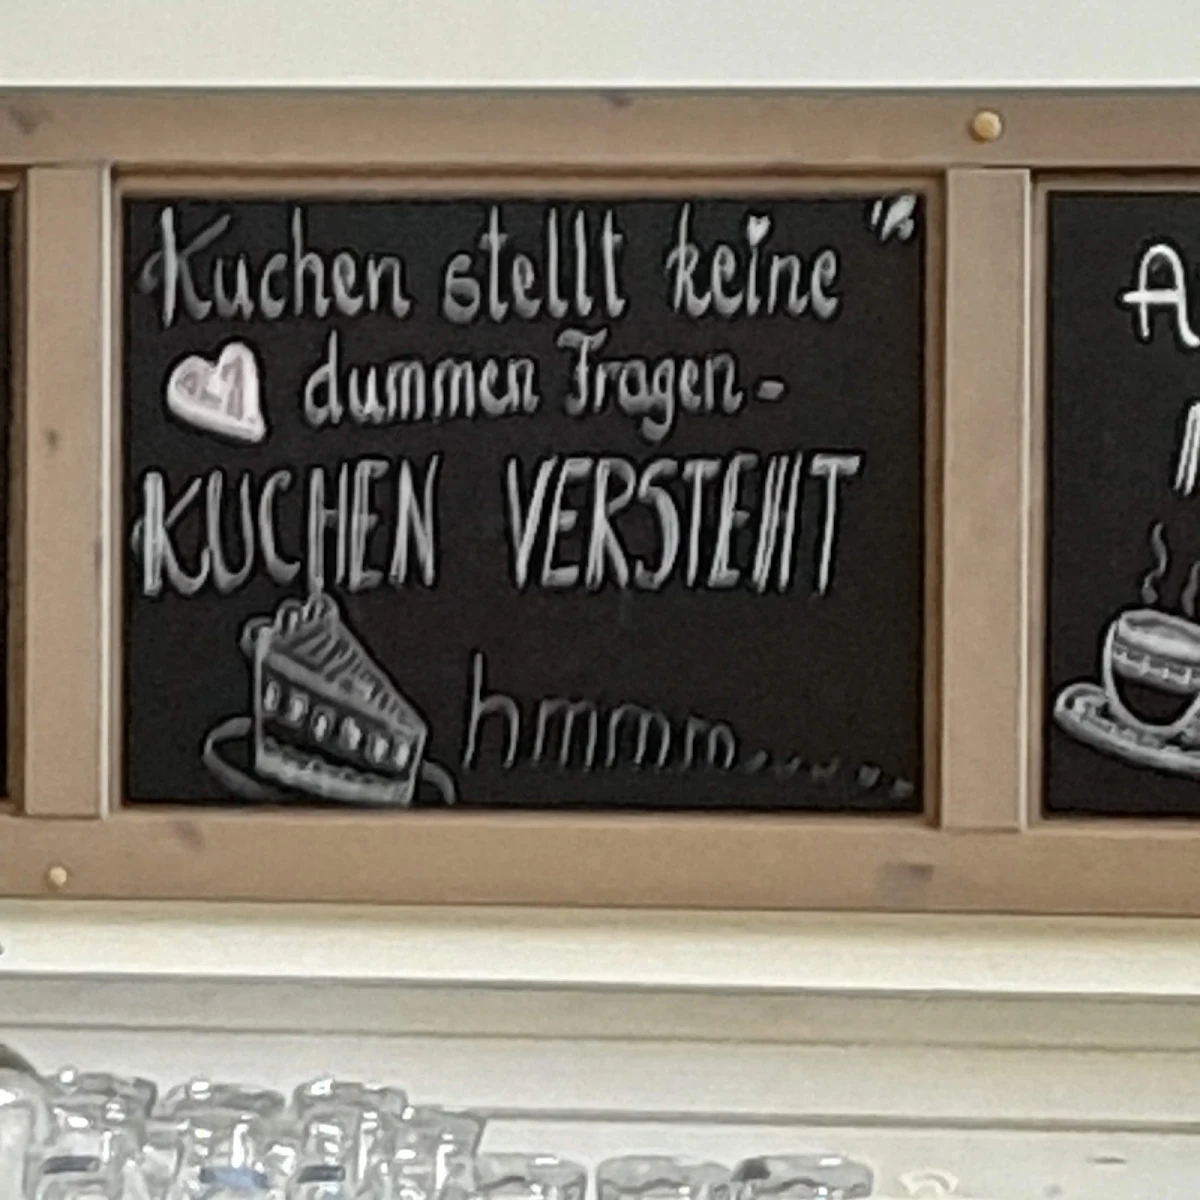 Kuchen stellt keine
dummen Fragen -
KUCHEN VERSTEHT
hmmm......
A